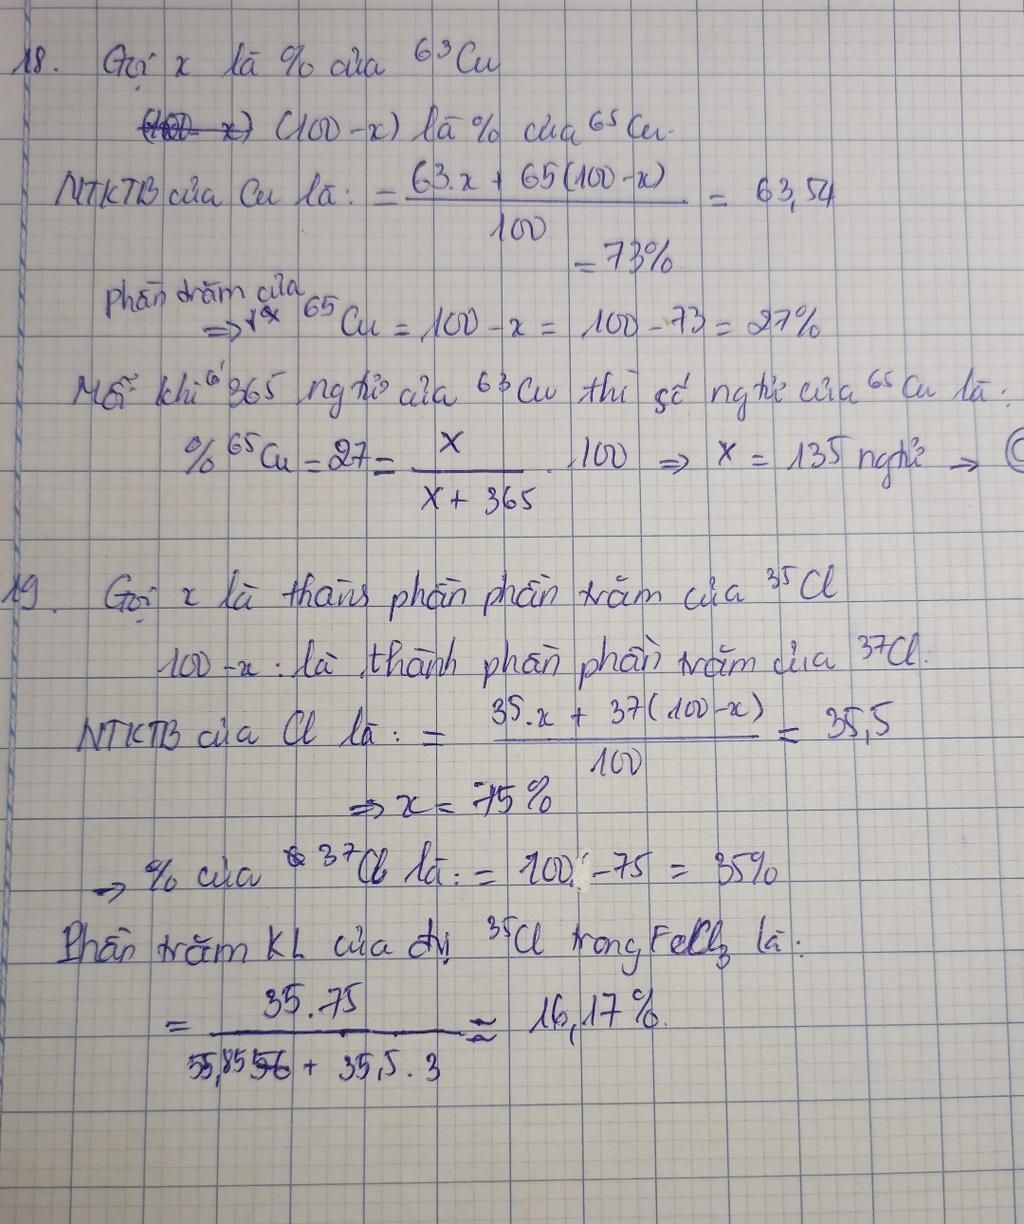 18. Gọi x là % của ⁶³Cu
(100-x) (100-x) là % của ⁶⁵Cu.
NTKTB của Cu là: = (63.x + 65(100-x))/100 = 63,54
= 73%
phần trăm của
⇒ ⁶⁵Cu = 100 - x = 100 - 73 = 27%
Mỗi khi có 365 ngtử của ⁶³Cu thì số ngtử của ⁶⁵Cu là:
% ⁶⁵Cu = 27 = X/(X + 365) . 100 ⇒ X = 135 ngtử →
19. Gọi x là thành phần phần trăm của ³⁵Cl
100-x: là thành phần phần trăm của ³⁷Cl.
NTKTB của Cl là: = (35.x + 37(100-x))/100 = 35,5
⇒ x = 75%
→ % của ³⁷Cl là: = 100 - 75 = 35%
Phần trăm KL của đvị ³⁵Cl trong FeCl₃ là:
= (35.75)/(55,85 56 + 35,5.3) ≈ 16,17%.